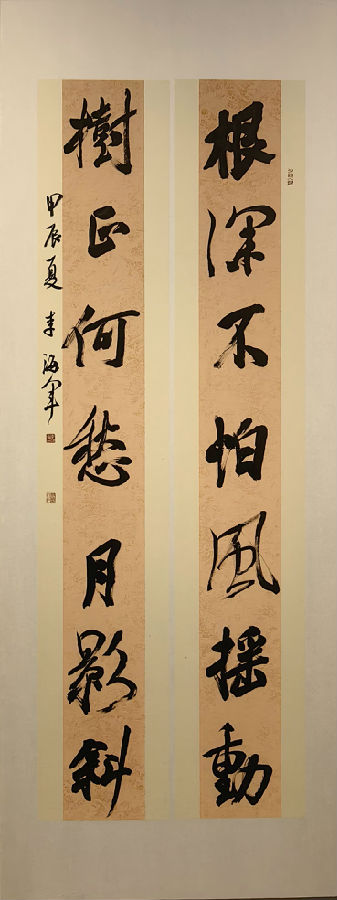 根深不怕風搖動
樹正何愁月影斜
甲辰夏 李海軍